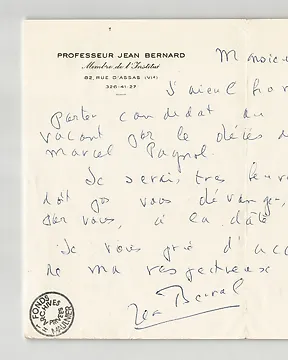 PROFESSEUR JEAN BERNARD
Membre de l'Institut
82, RUE D'ASSAS (VIe)
326-41-27
Monsieu
J'ai
porter candidat au
vacant par le décès d
Marcel Pagnol.
Je serai très heur
vous déranger,
vous, à la date
Je vous prie d'
de ma respectueux
Jean Bernard
FONDS
ARCHIVES